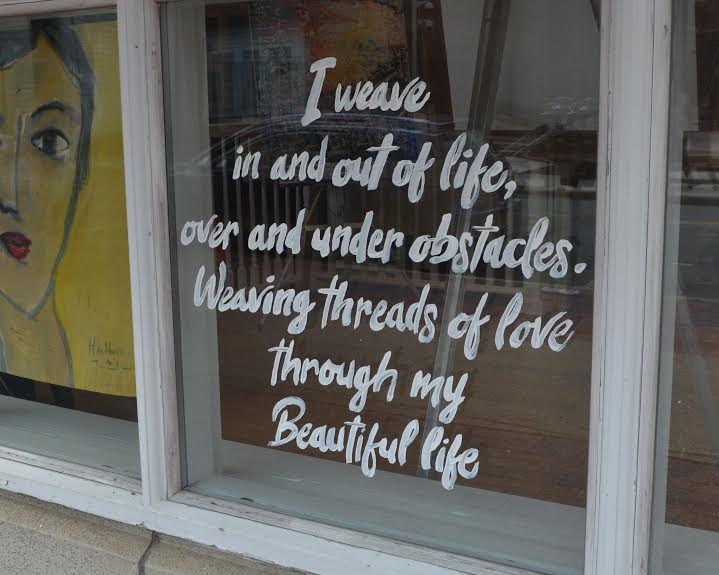 I weave
in and out of life,
over and under obstacles.
Weaving threads of love
through my
Beautiful life